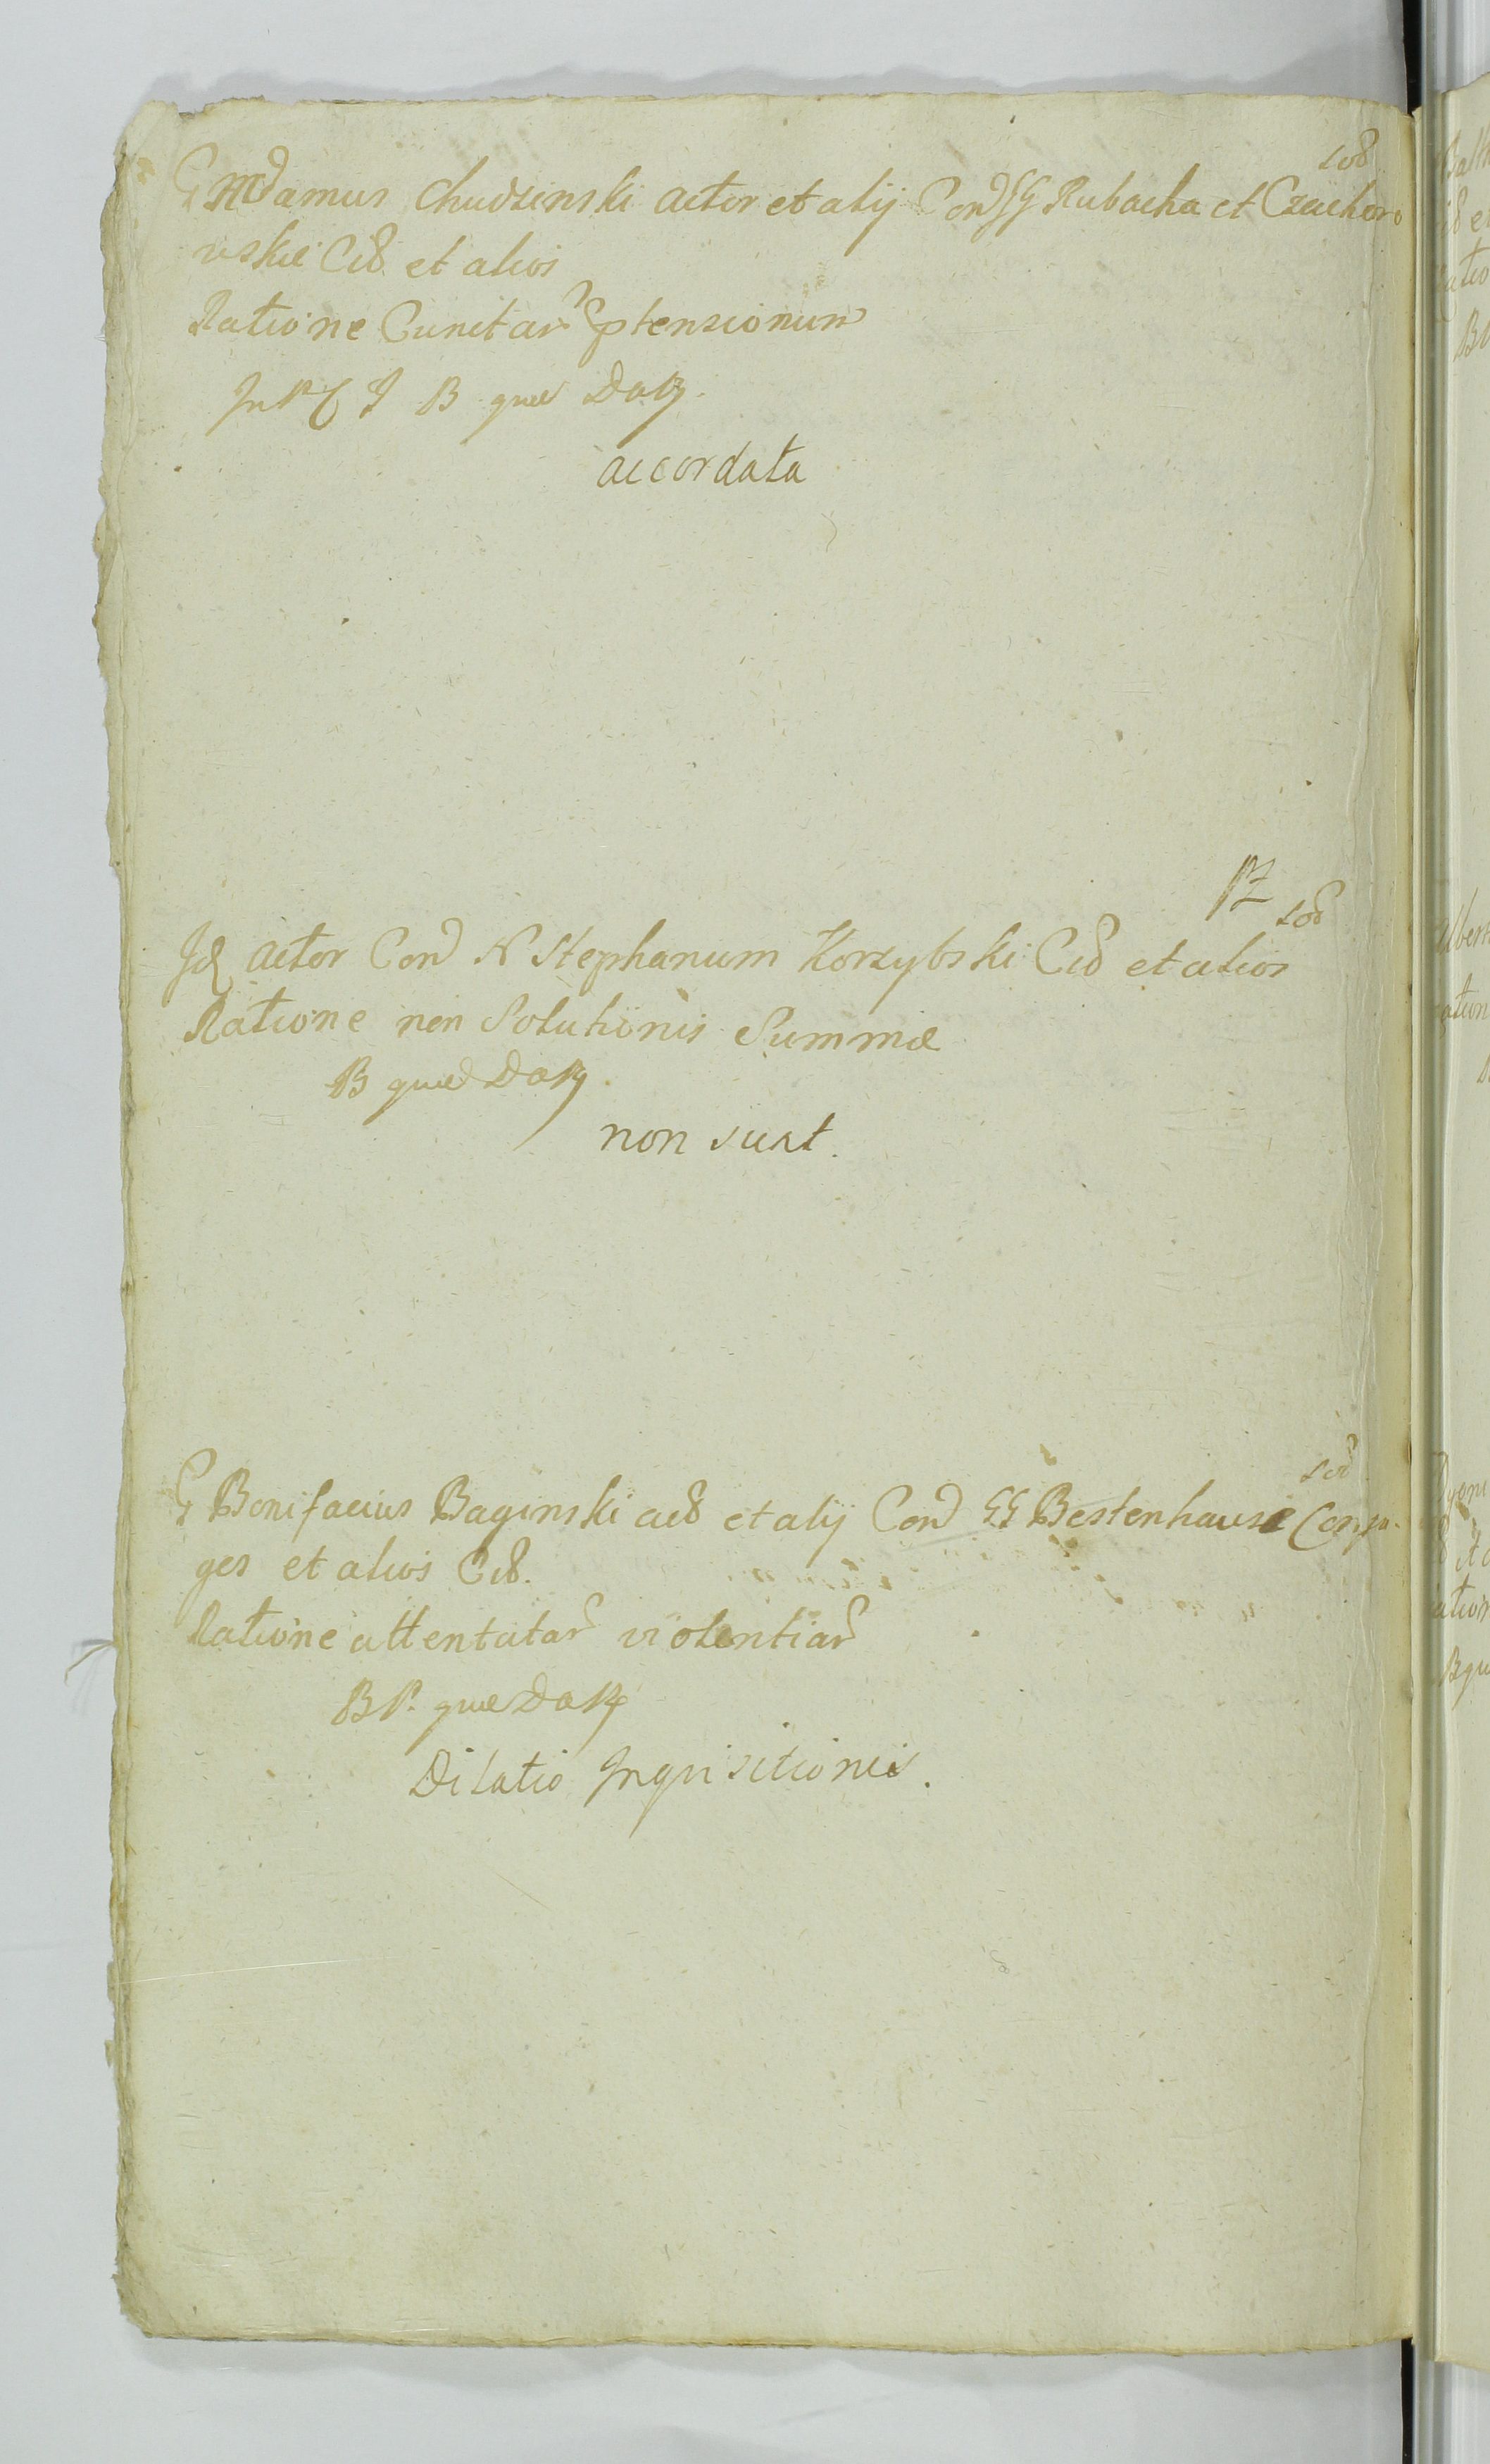 G Adamus Chudzinski actor et alij Con GG Rubacha et Czacho
wskie Cit et alios
Ratione Cunctar ptensionum
B quæ
accordata
actor Con N Stephanum Korzybski Cit et alios
Ratione non Solutionis Summæ
B quæ
non sunt.
G Bonifacius Baginski act et alij Con GG Bestenhause Conju
ges et alios Cit.
Ratione attentatar violentiar
BP. quæ
Dilatio Inqvisitionis.